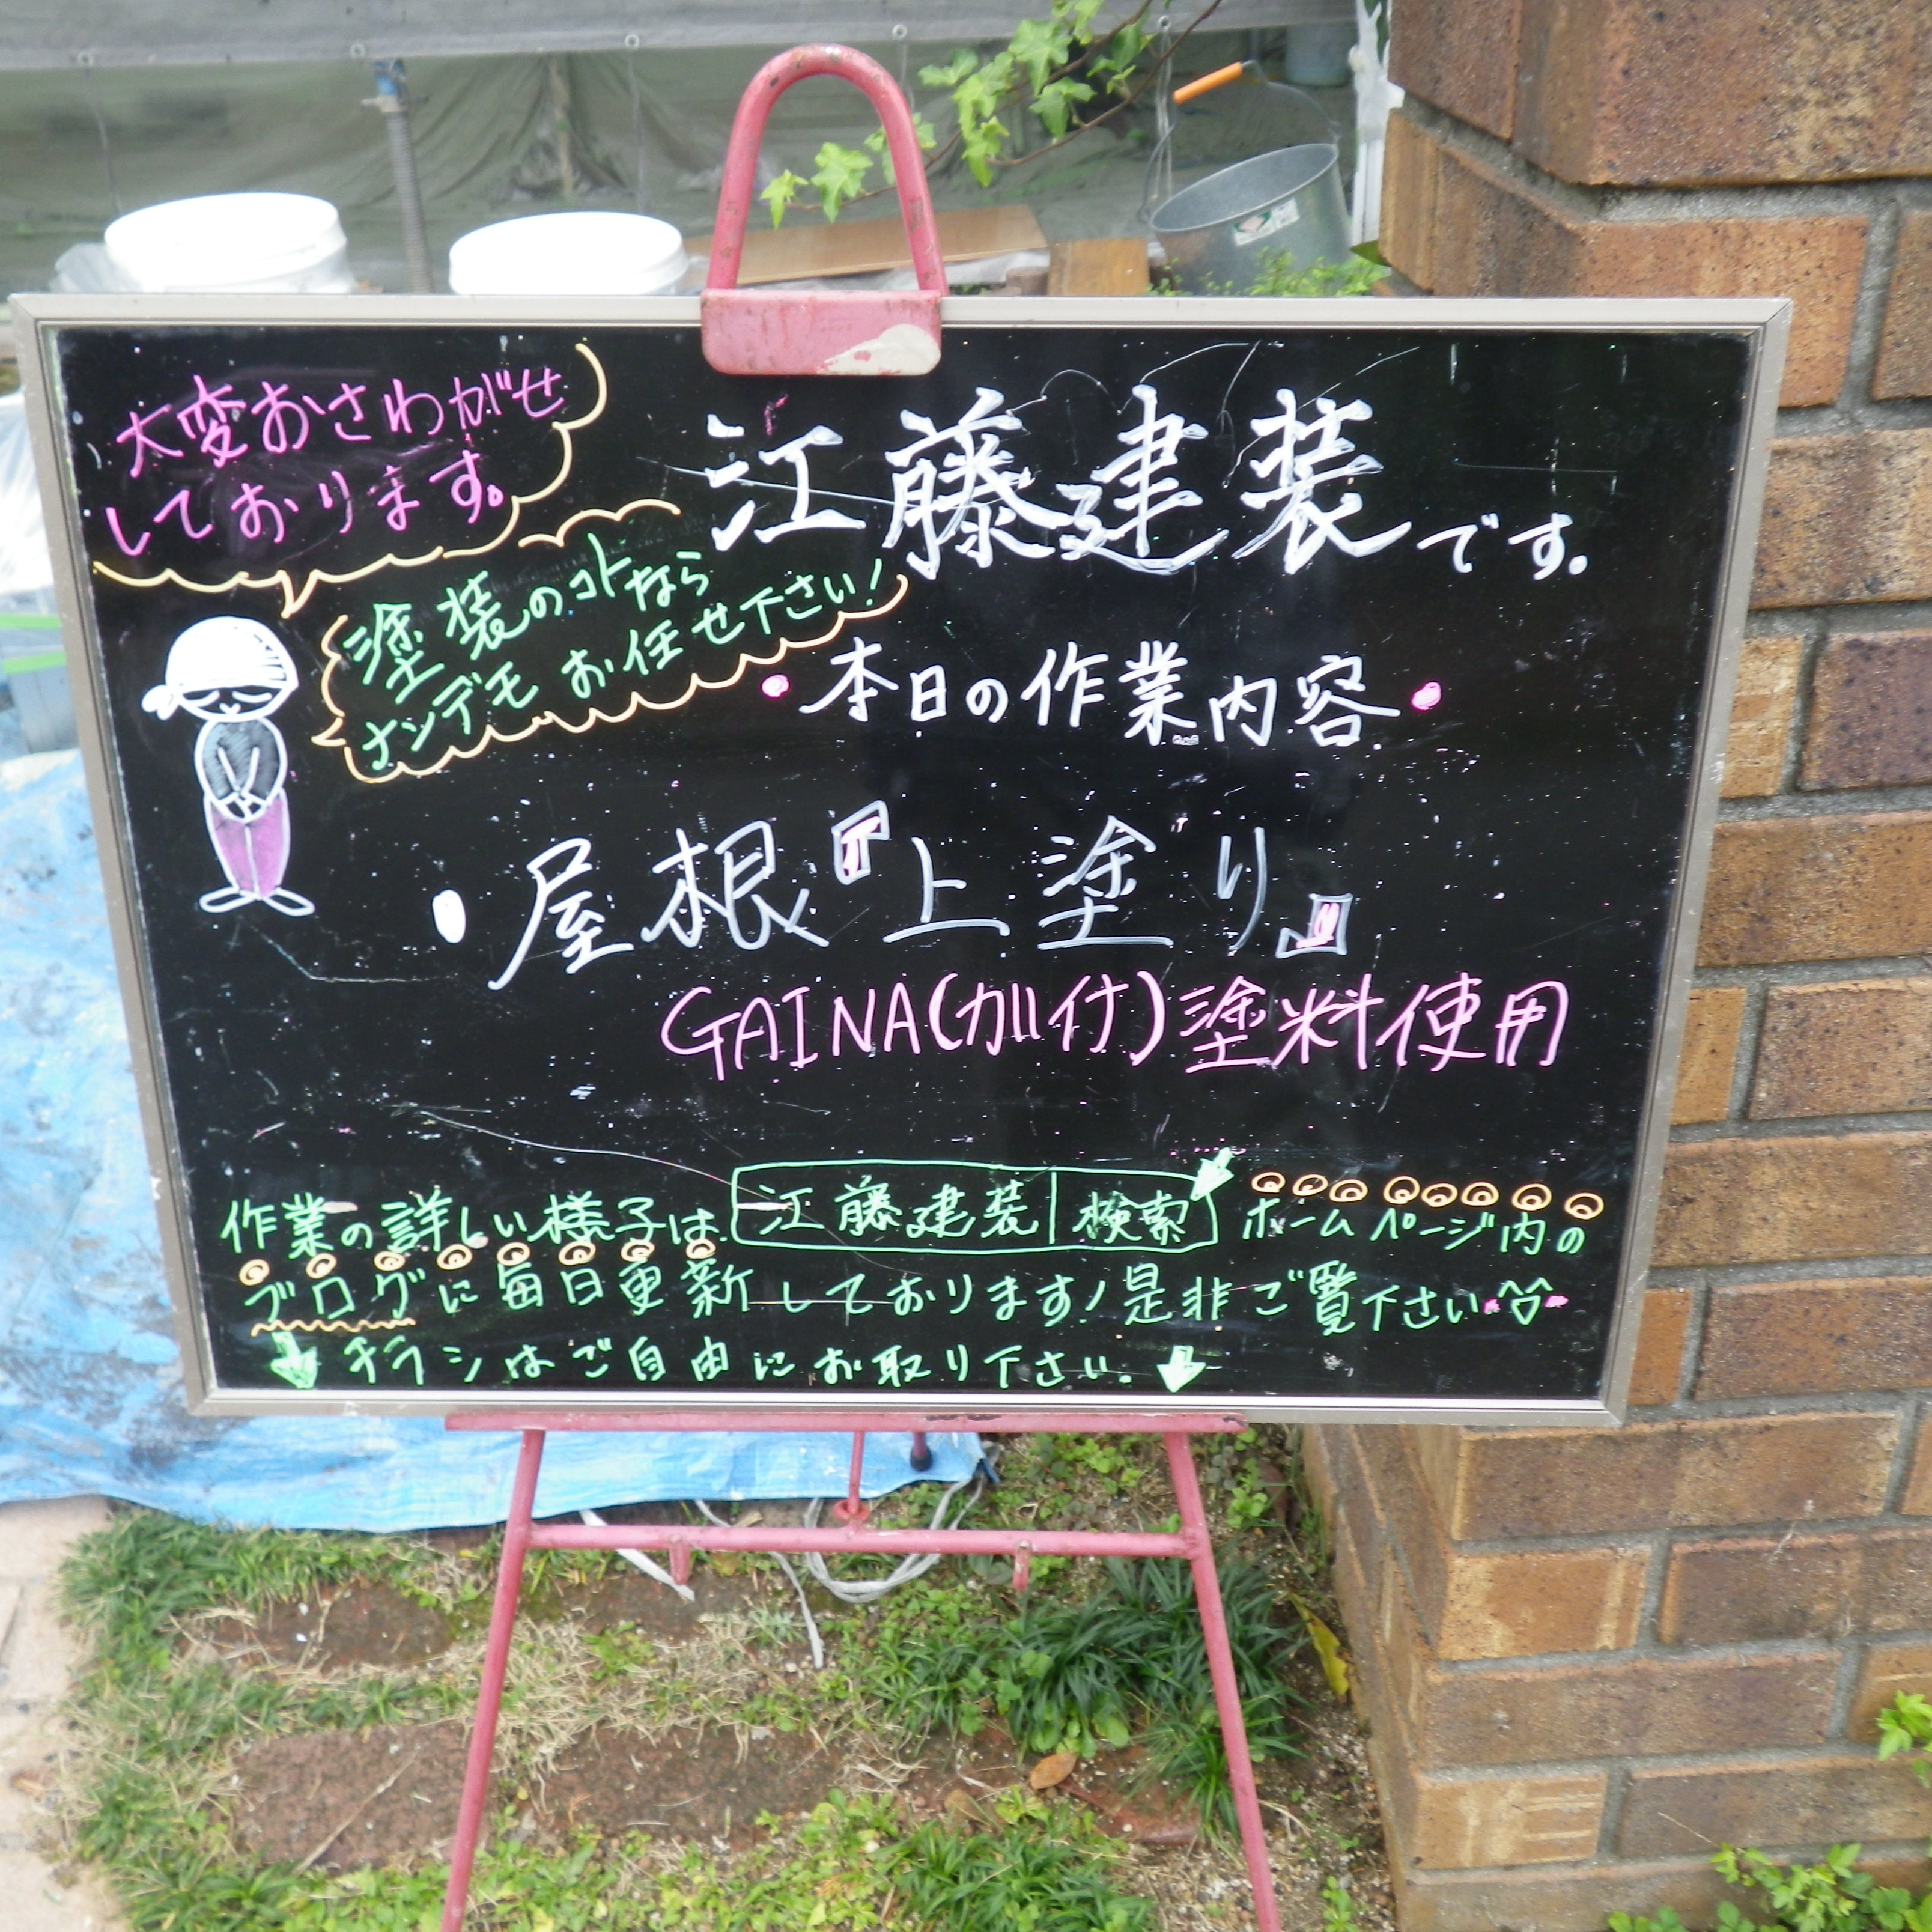 大変おさわがせ
しております。
江藤建装です。
塗装のコトなら
ナンデモお任せ下さい!
本日の作業内容
・屋根『上塗り』
GAINA(ガイナ)塗料使用
作業の詳しい様子は 江藤建装 検索 ホームページ内の
ブログに毎日更新しております!是非ご覧下さい
チラシはご自由にお取り下さい。